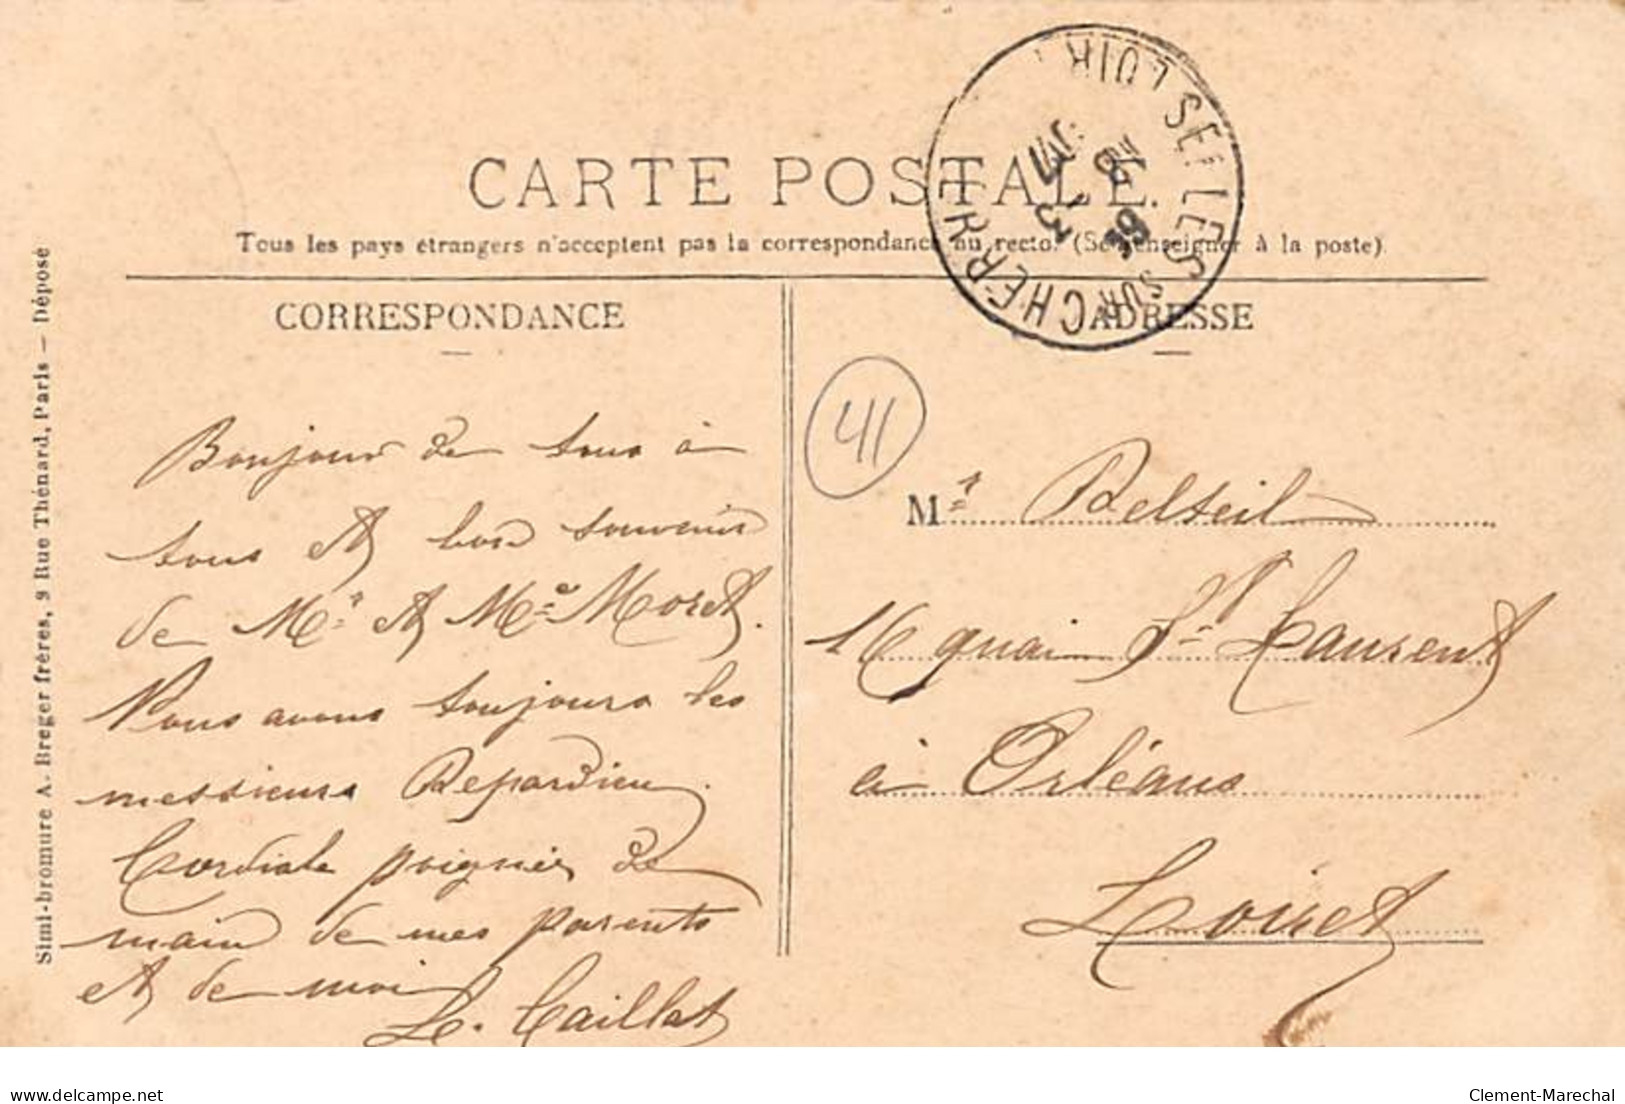 CARTE POSTALE.
Tous les pays étrangers n'acceptent pas la correspondance au recto. (Se renseigner à la poste).
SELLES SUR CHER
LOIR
CHER
CORRESPONDANCE
Bonjour de tous à
tous et bon souvenir
de Mr et Me Moret.
Nous avons toujours les
messieurs Depardieu.
Cordiale poignée de
main de mes parents
et de moi
L. Caillat
ADRESSE
41
Mr Delteil
16 quai St Laurent
à Orléans
Loiret
Simi-bromure A. Breger frères, 9 Rue Thénard, Paris — Déposé
delcampe.net
Clement-Marechal